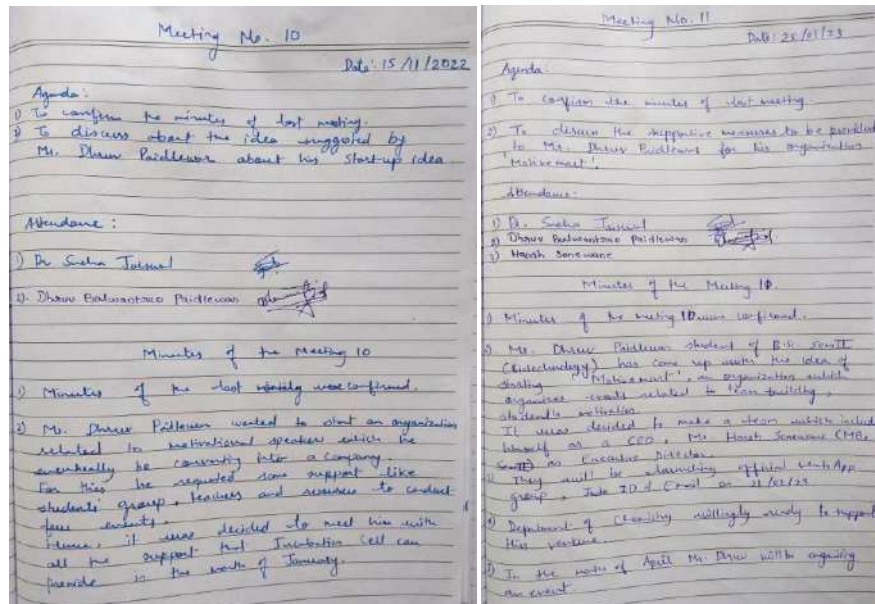 Meeting No. 10
Date: 15/11/2022
Agenda:
1) To confirm the minutes of last meeting.
2) To discuss about the idea suggested by
Mr. Dhruv Paidlewar about his start-up idea.
Attendance:
1) Dr Sneha Jaiswal
2). Dhruv Balwantrao Paidlewar
Minutes of the Meeting 10
1) Minutes of the last were confirmed.
2) Mr. Dhruv Paidlewar wanted to start an organization
related to motivational speaker which he
eventually be converting into a company.
For this he requested some support like
students' group, teachers and resources to conduct
few events.
Hence, it was decided to meet him with
all the support that Incubation Cell can
provide in the month of January.
Meeting No. 11
Date: 25/01/23
Agenda:
1) To confirm the minutes of last meeting.
2) To discuss the supportive measures to be provided
to Mr. Dhruv Paidlewar for his organization
Attendance:
1) Dr. Sneha Jaiswal
2) Dhruv Balwantrao Paidlewar
3) Harsh Sonewane
Minutes of the Meeting 10.
1) Minutes of the meeting 10 were confirmed.
2) Mr. Dhruv Paidlewar student of B.Sc. Sem II
(Biotechnology) has come up with the idea of
starting an organization which
organises events related to team building,
students motivation.
It was decided to make a team which include
himself as a CEO, Mr. Harsh Sonewane
as Executive Director.
They will be launching official
group, ID & Email on
4) Department of Chemistry willingly ready to support
this venture.
5) In the month of April Mr. Dhruv will be organising
an event